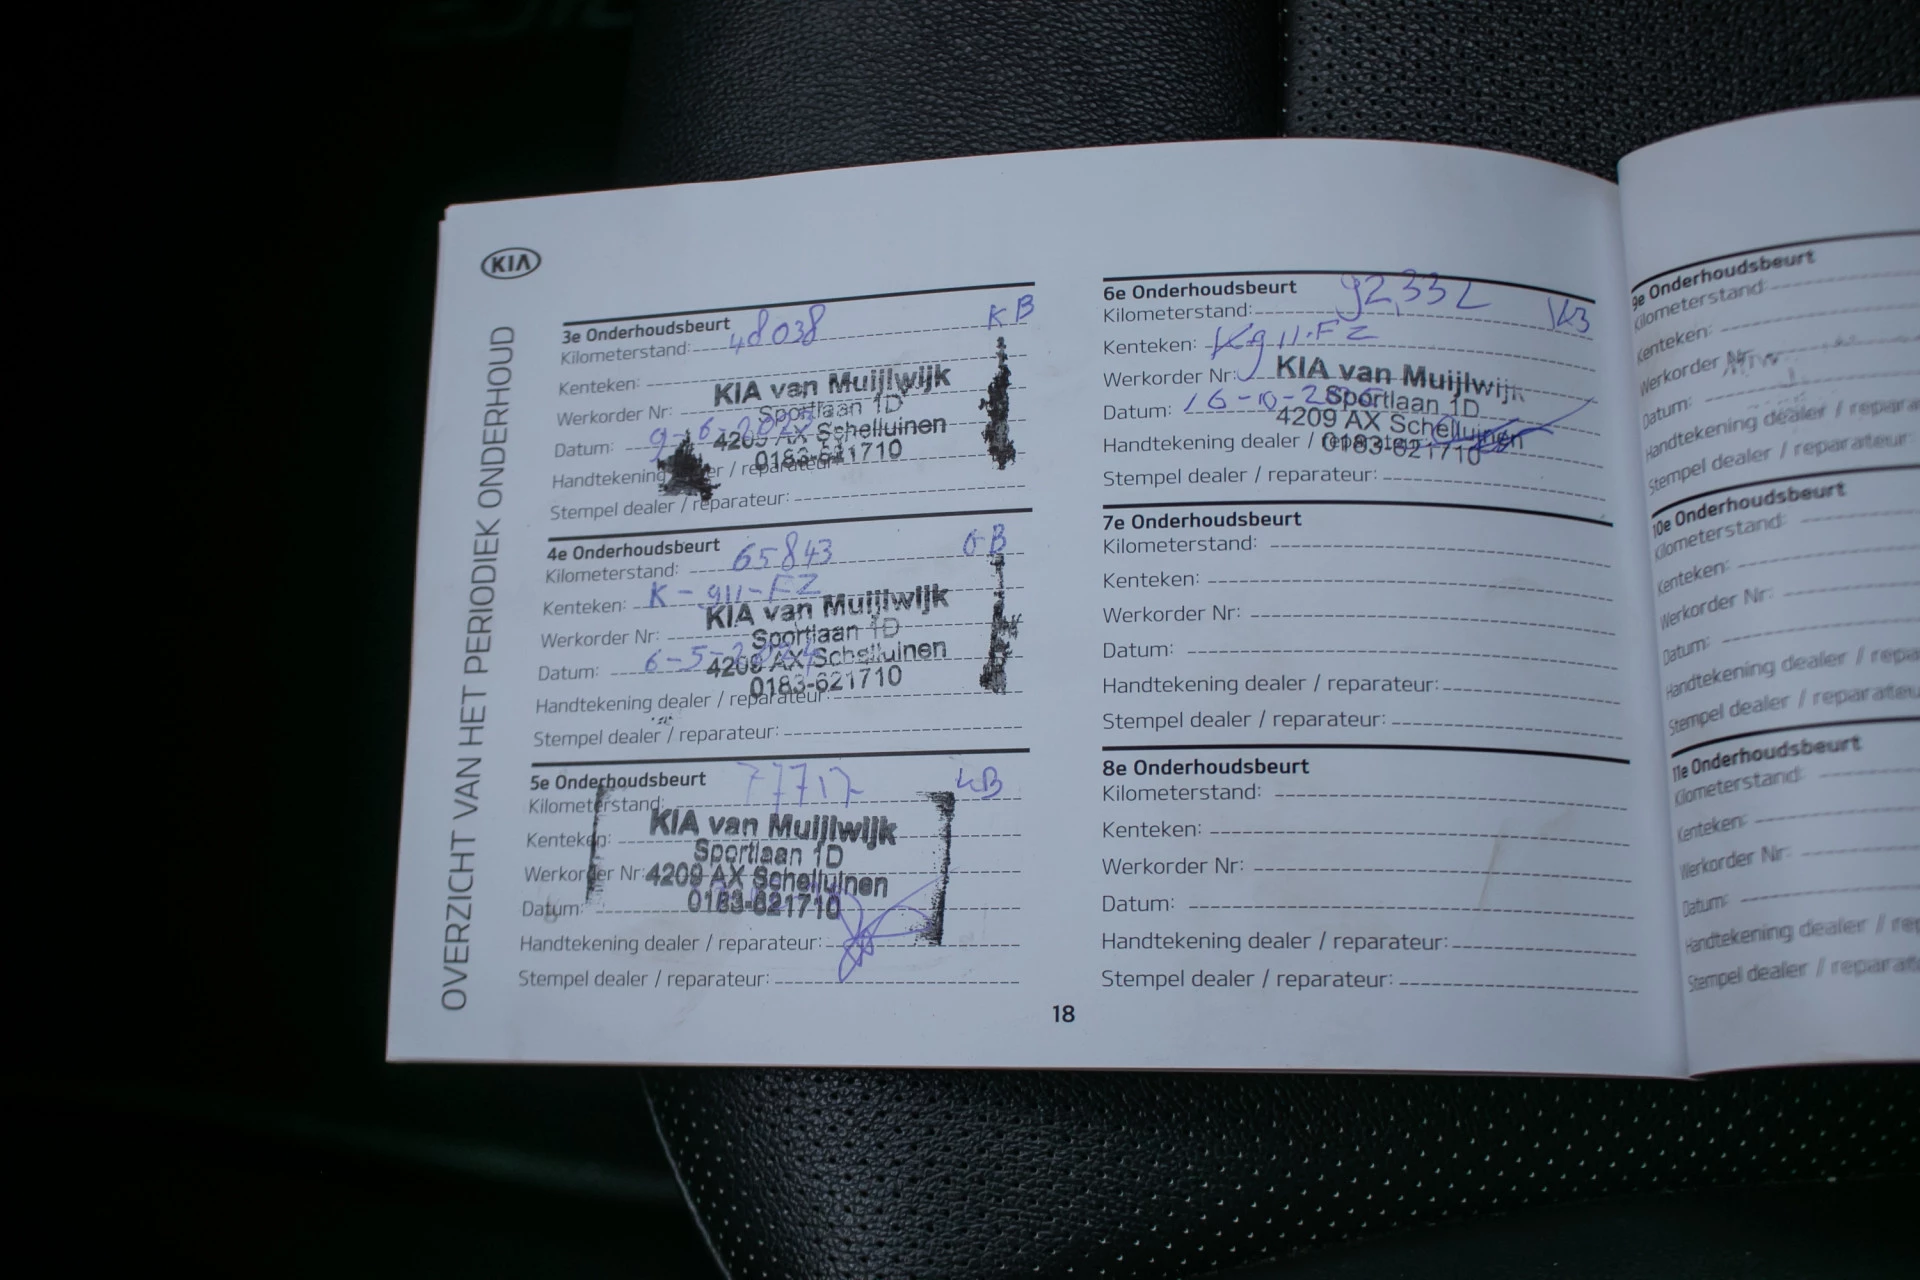 KIA
OVERZICHT VAN HET PERIODIEK ONDERHOUD
3e Onderhoudsbeurt
Kilometerstand: 48038 KB
Kenteken:
KIA van Muijlwijk
Werkorder Nr:
Sportlaan 1D
Datum: 9-6-2023
4209 AX Schelluinen
0183-621710
Handtekening dealer / reparateur:
Stempel dealer / reparateur:
4e Onderhoudsbeurt
Kilometerstand: 65843 GB
Kenteken: K-911-FZ
KIA van Muijlwijk
Werkorder Nr:
Sportlaan 1D
Datum: 6-5-2024
4209 AX Schelluinen
0183-621710
Handtekening dealer / reparateur:
Stempel dealer / reparateur:
5e Onderhoudsbeurt
Kilometerstand: 77717 KB
KIA van Muijlwijk
Kenteken:
Sportlaan 1D
Werkorder Nr:
4209 AX Schelluinen
0183-621710
Datum:
Handtekening dealer / reparateur:
Stempel dealer / reparateur:
6e Onderhoudsbeurt
Kilometerstand: 92,332 KB
Kenteken: K911-FZ
Werkorder Nr:
KIA van Muijlwijk
Sportlaan 1D
Datum: 16-10-
4209 AX Schelluinen
Handtekening dealer / reparateur:
0183-621710
Stempel dealer / reparateur:
7e Onderhoudsbeurt
Kilometerstand:
Kenteken:
Werkorder Nr:
Datum:
Handtekening dealer / reparateur:
Stempel dealer / reparateur:
8e Onderhoudsbeurt
Kilometerstand:
Kenteken:
Werkorder Nr:
Datum:
Handtekening dealer / reparateur:
Stempel dealer / reparateur:
18
9e Onderhoudsbeurt
Kilometerstand:
Kenteken:
Werkorder Nr:
Datum:
Handtekening dealer / repara
Stempel dealer / reparateur:
10e Onderhoudsbeurt
Kilometerstand:
Kenteken:
Werkorder Nr:
Datum:
Handtekening dealer / repa
Stempel dealer / reparateu
11e Onderhoudsbeurt
Kilometerstand:
Kenteken:
Werkorder Nr:
Datum:
Handtekening dealer / rep
Stempel dealer / reparat